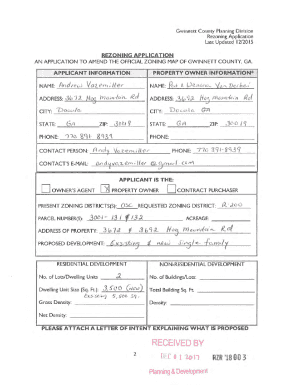 Gwinnett County Planning Division
Rezoning Application
Last Updated 12/2015
REZONING APPLICATION
AN APPLICATION TO AMEND THE OFFICIAL ZONING MAP OF GWINNETT COUNTY, GA.
APPLICANT INFORMATION
NAME: Andrew Vazemiller
ADDRESS: 3672 Hog Mountain Rd
CITY: Dacula
STATE: GA ZIP: 30019
PHONE: 770 891-8939
PROPERTY OWNER INFORMATION*
NAME:
ADDRESS: 3692 Hog Mountain Rd
CITY: Dacula
STATE: GA ZIP: 30019
PHONE:
CONTACT PERSON: Andy Vazemiller PHONE: 770 891-8939
CONTACT'S E-MAIL: andyvazemiller@gmail.com
APPLICANT IS THE:
OWNER'S AGENT PROPERTY OWNER CONTRACT PURCHASER
PRESENT ZONING DISTRICT(S): OSC REQUESTED ZONING DISTRICT: R 200
PARCEL NUMBER(S): 3001-131 & 132 ACREAGE:
ADDRESS OF PROPERTY: 3672 & 3692 Hog Mountain Rd
PROPOSED DEVELOPMENT: Existing & new single family
RESIDENTIAL DEVELOPMENT
No. of Lots/Dwelling Units: 2
Dwelling Unit Size (Sq. Ft.): 3,500 (new)
Existing
Gross Density:
Net Density:
NON-RESIDENTIAL DEVELOPMENT
No. of Buildings/Lots:
Total Building Sq. Ft.
Density:
PLEASE ATTACH A LETTER OF INTENT EXPLAINING WHAT IS PROPOSED
RECEIVED BY
2
DEC 01 2017
RZR '18 003
Planning & Development